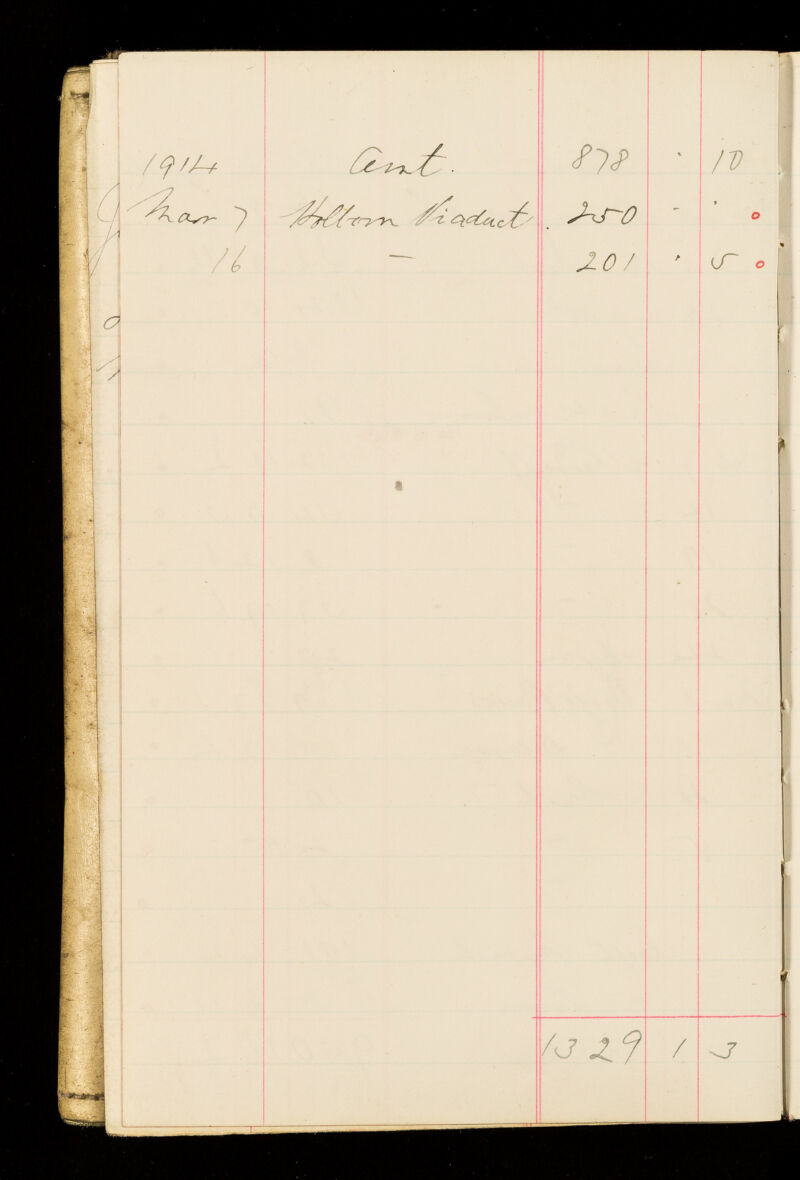 1914 Amt. 878 · 10
Mar 7 Holborn Viaduct. 250 - ·
16 — 201 · 5
1329 1 3